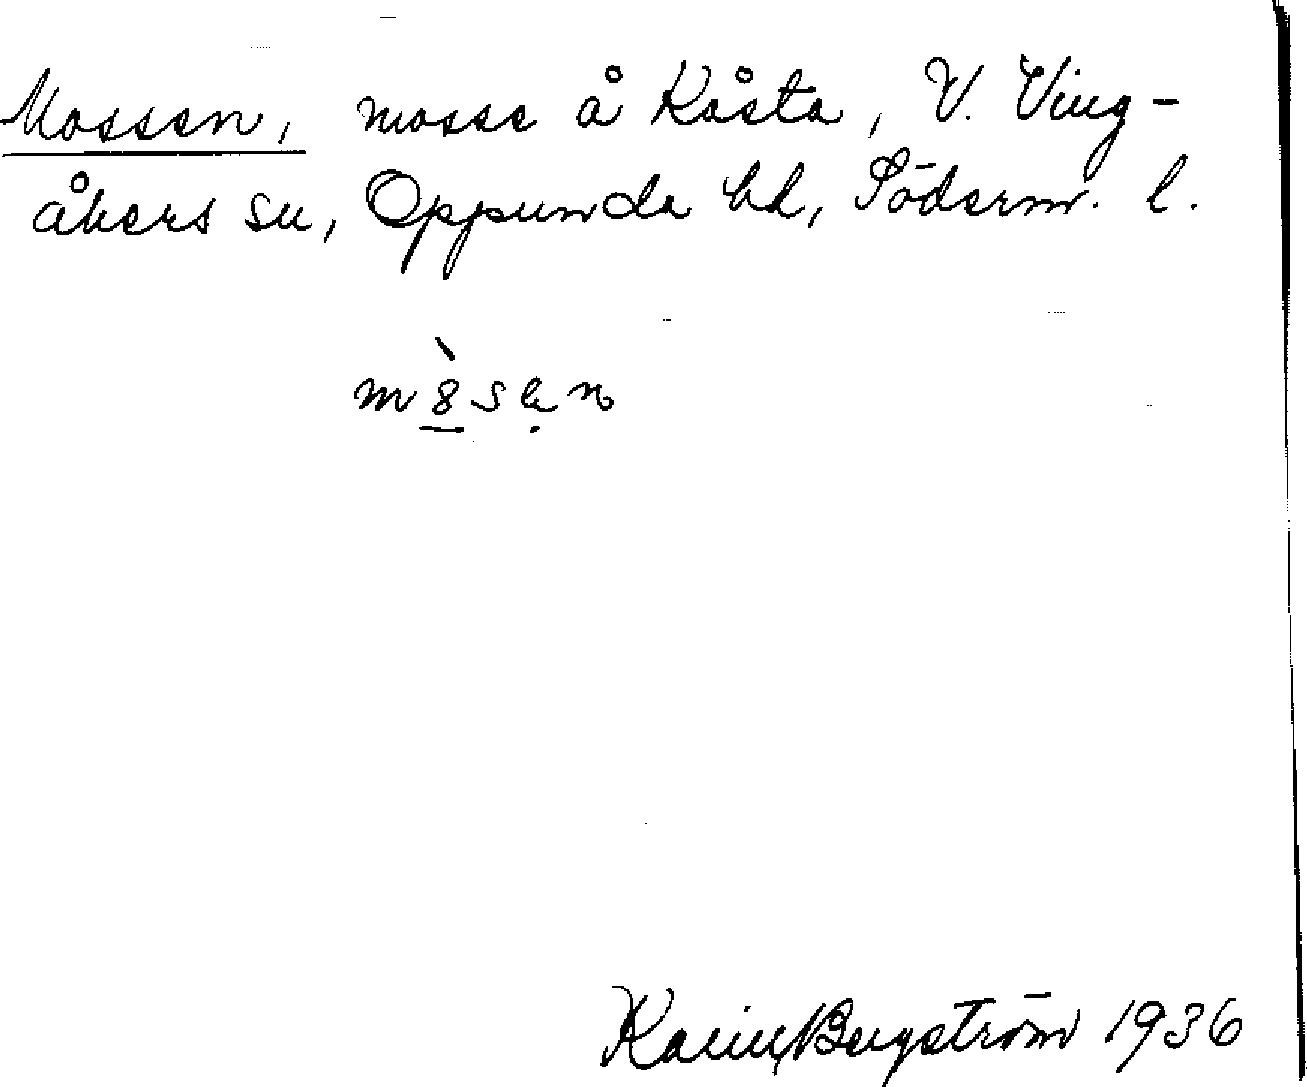 Mossen, mosse å Kåsta, V. Ving-
åkers sn, Oppunda hd, Söderm. l.
m8̀sen
Karin Bergström 1936